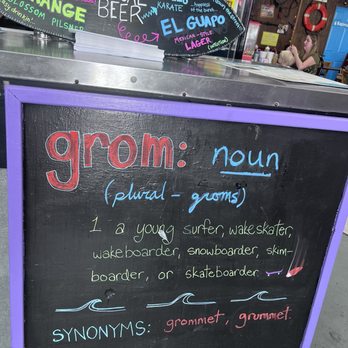 ANGE
BLOSSOM PILSNER
BEER
grom
KARATE
EL GUAPO
MEXICAN-STYLE
LAGER
grom: noun
(plural - groms)
1 a young surfer, wakeskater,
wakeboarder, snowboarder, skim-
boarder, or skateboarder
SYNONYMS: grommet, grummet.